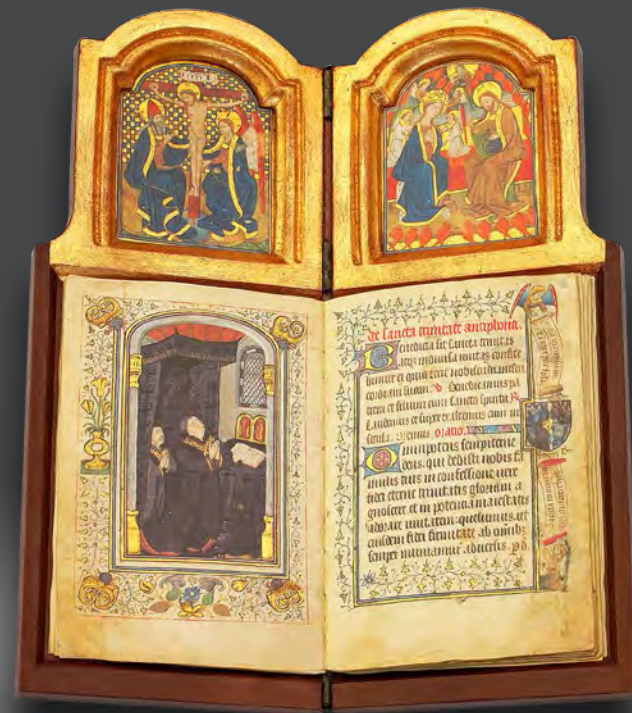 De sancta trinitate antiphona.
Benedicta sit sancta trinitas
atqz indiuisa unitas confite
bimur ei quia fecit nobiscum miseri
cordiam suam. V Benedicamus pa
trem et filium cum sancto spiritu R
Laudemus et superexaltemus eum in
secula. Oremus. oratio.
Omnipotens sempiterne
deus. qui dedisti nobis fa
mulis tuis in confessione uere
fidei eterne trinitatis gloriam a
gnoscere. et in potencia maiestatis
adorare unitatem: quesumus. ut
eiusdem fidei firmitate ab omnibz
semper muniamur aduersis. p d